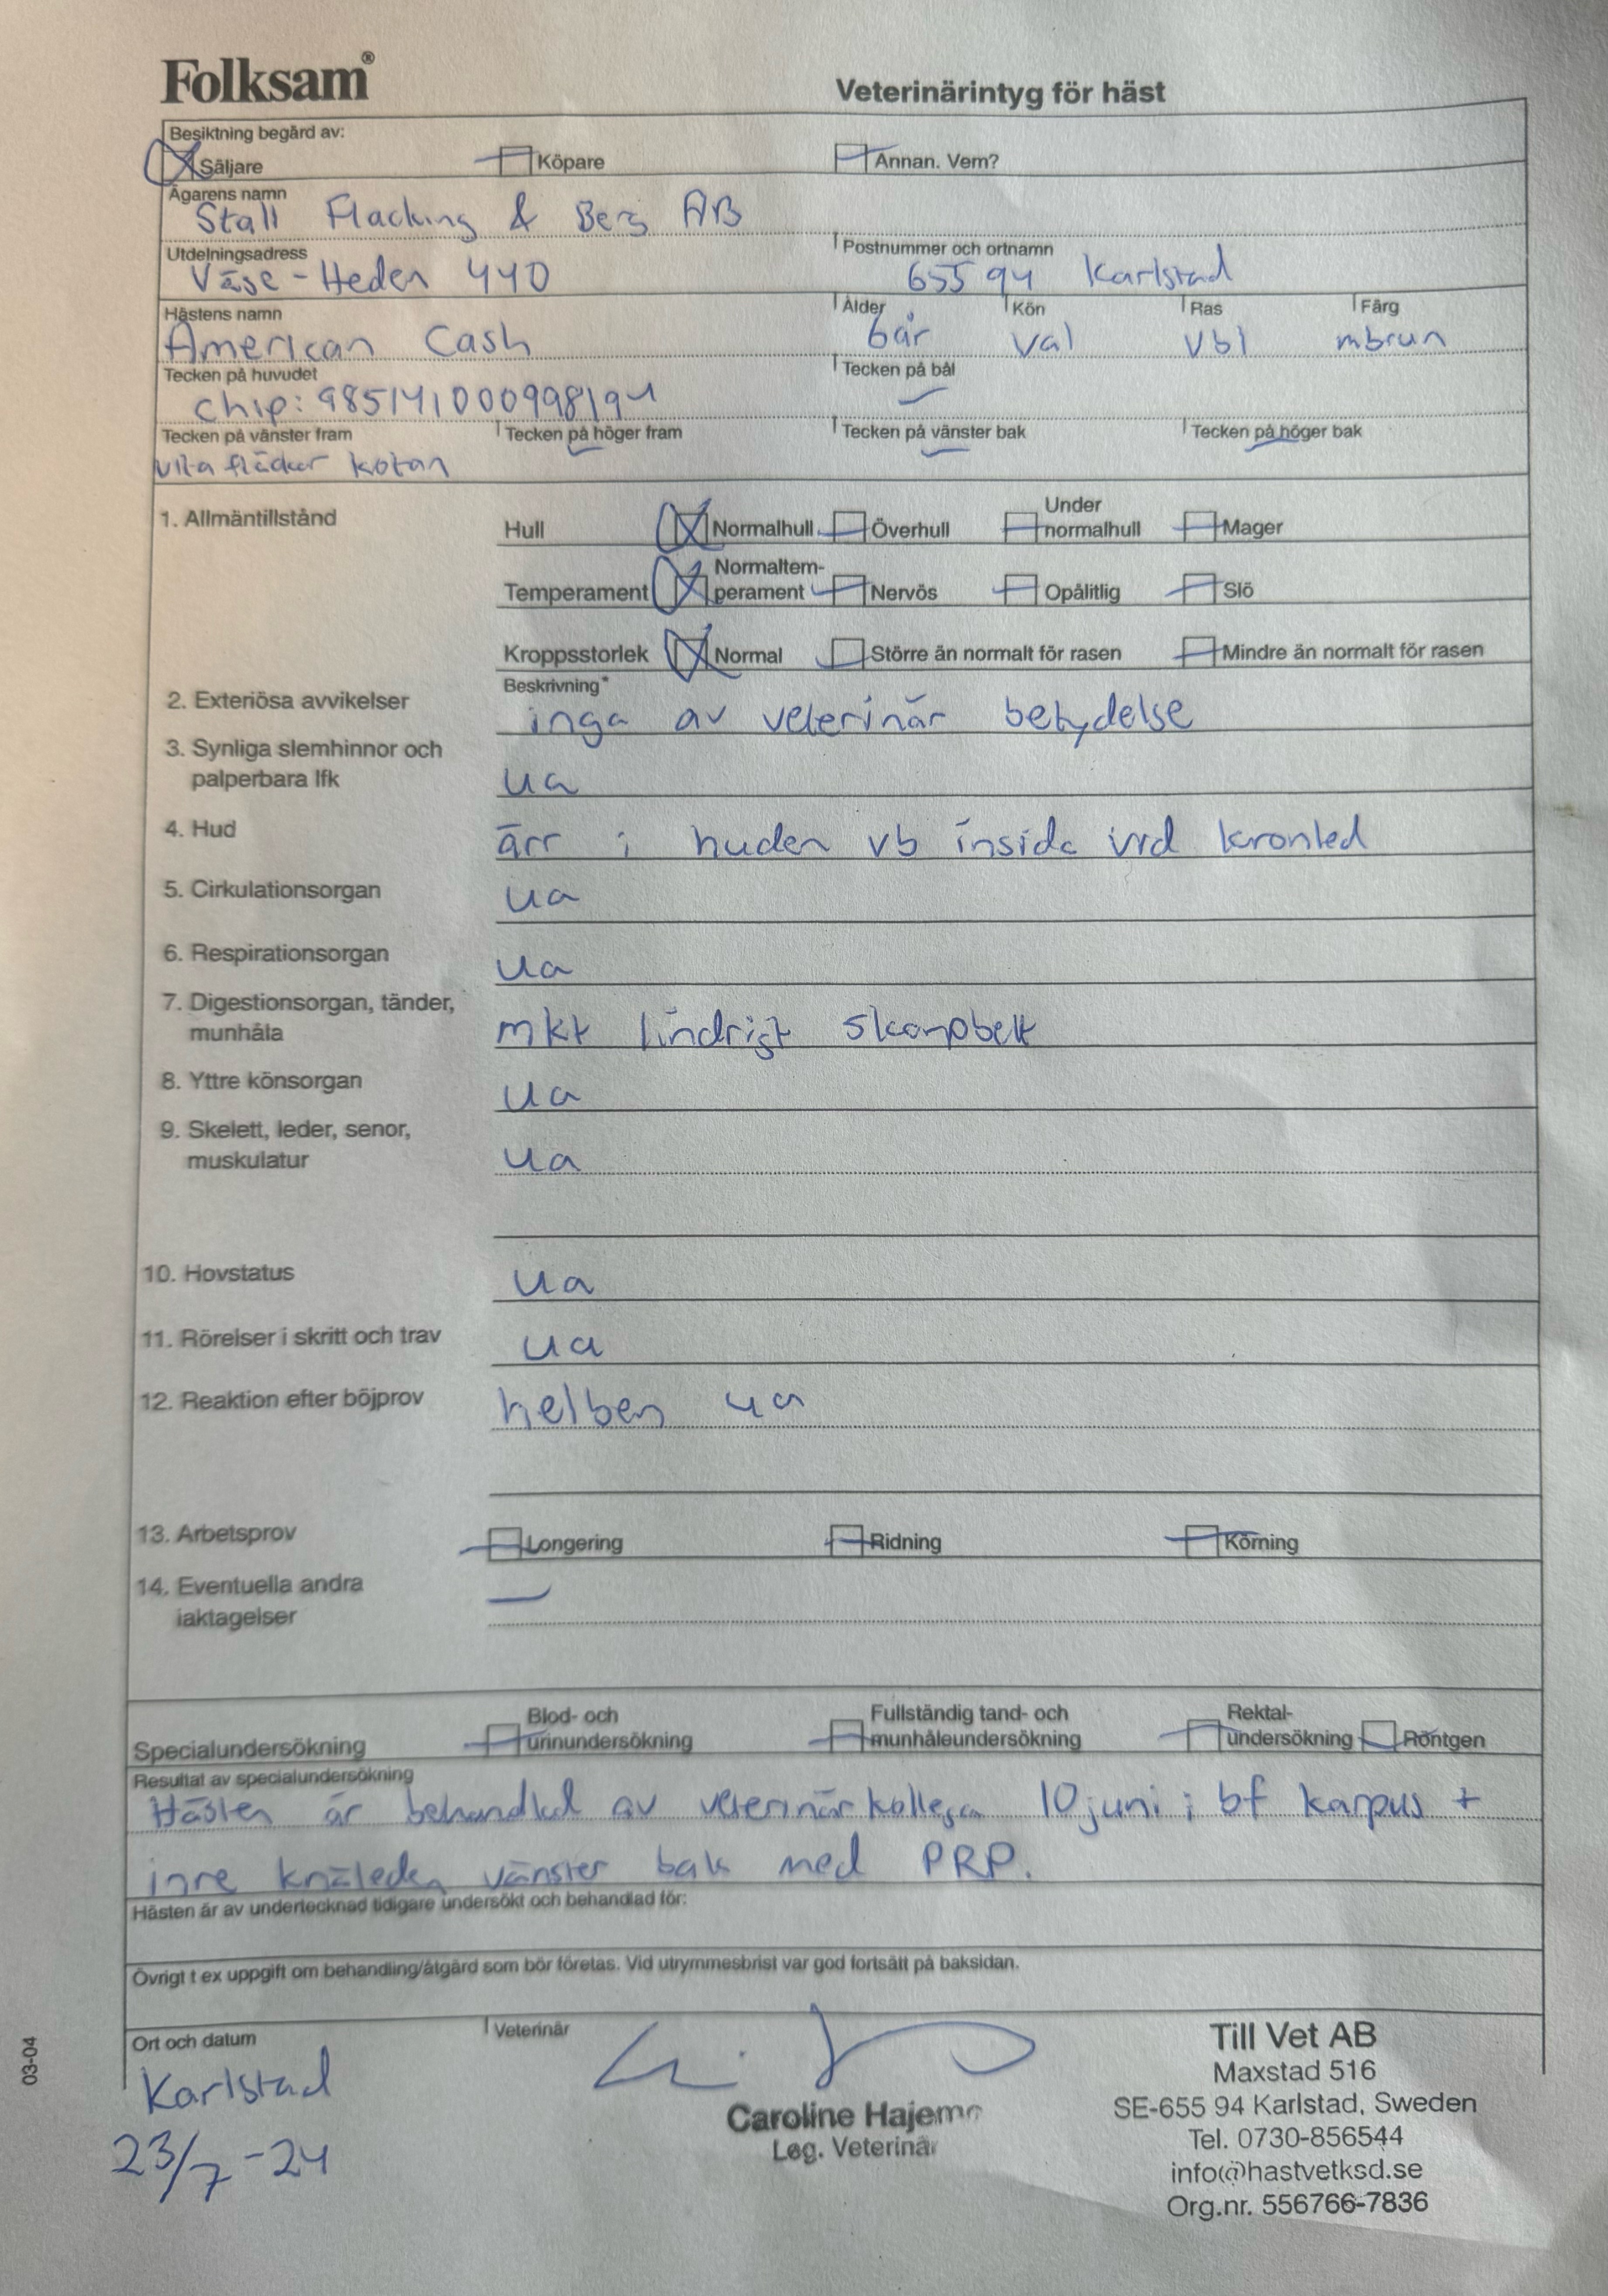 Folksam®
Veterinärintyg för häst
Besiktning begärd av:
Säljare Köpare Annan. Vem?
Ägarens namn
Stall Flacking & Berg AB
Utdelningsadress Postnummer och ortnamn
Väse-Heden 440 655 94 Karlstad
Hästens namn Ålder Kön Ras Färg
American Cash 6år val vbl mbrun
Tecken på huvudet Tecken på bål
chip: 985141000998194 –
Tecken på vänster fram Tecken på höger fram Tecken på vänster bak Tecken på höger bak
vita fläckar kotan – – –
1. Allmäntillstånd Hull Normalhull Överhull Under normalhull Mager
Temperament Normaltem-perament Nervös Opålitlig Slö
Kroppsstorlek Normal Större än normalt för rasen Mindre än normalt för rasen
Beskrivning*
2. Exteriösa avvikelser inga av veterinär betydelse
3. Synliga slemhinnor och
palperbara lfk ua
4. Hud ärr i huden vb insida vid kronled
5. Cirkulationsorgan ua
6. Respirationsorgan ua
7. Digestionsorgan, tänder,
munhåla mkt lindrigt skarpbett
8. Yttre könsorgan ua
9. Skelett, leder, senor,
muskulatur ua
10. Hovstatus ua
11. Rörelser i skritt och trav ua
12. Reaktion efter böjprov helben ua
13. Arbetsprov Longering Ridning Körning
14. Eventuella andra –
iaktagelser
Specialundersökning Blod- och urinundersökning Fullständig tand- och munhåleundersökning Rektal-undersökning Röntgen
Resultat av specialundersökning
Hästen är behandlad av veterinärkollega 10 juni i bf karpus +
inre knäleden vänster bak med PRP.
Hästen är av undertecknad tidigare undersökt och behandlad för:
Övrigt t ex uppgift om behandling/åtgärd som bör företas. Vid utrymmesbrist var god fortsätt på baksidan.
Ort och datum Veterinär
Karlstad
23/7-24
Caroline Hajemo
Leg. Veterinär
Till Vet AB
Maxstad 516
SE-655 94 Karlstad, Sweden
Tel. 0730-856544
info@hastvetksd.se
Org.nr. 556766-7836
03-04